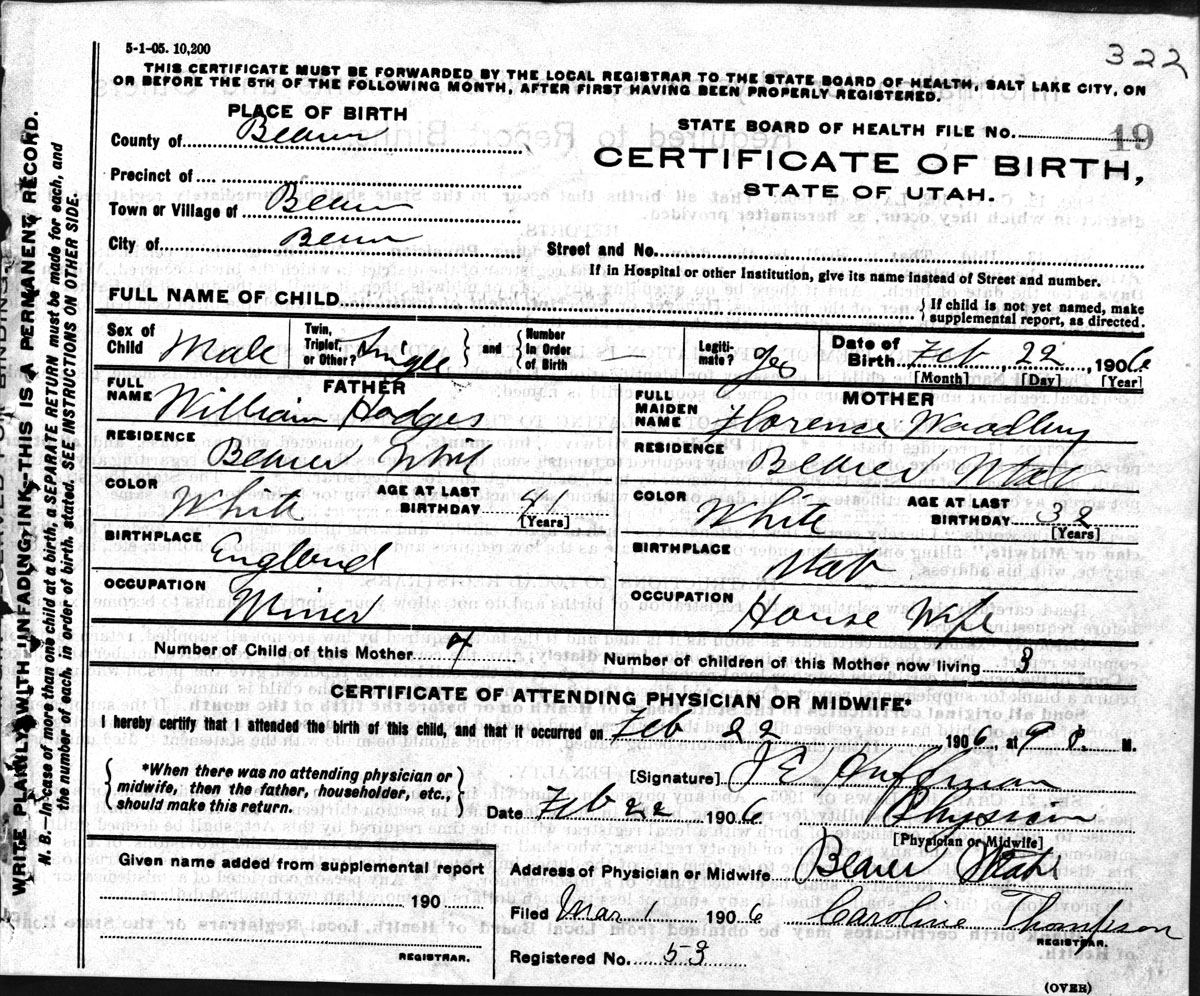 5-1-05. 10,200
322
THIS CERTIFICATE MUST BE FORWARDED BY THE LOCAL REGISTRAR TO THE STATE BOARD OF HEALTH, SALT LAKE CITY, ON
OR BEFORE THE 5TH OF THE FOLLOWING MONTH, AFTER FIRST HAVING BEEN PROPERLY REGISTERED.
PLACE OF BIRTH
County of Beaver
Precinct of
Town or Village of Beaver
City of Beaver
STATE BOARD OF HEALTH FILE NO. 19
CERTIFICATE OF BIRTH,
STATE OF UTAH.
Street and No.
If in Hospital or other Institution, give its name instead of Street and number.
FULL NAME OF CHILD
{If child is not yet named, make
supplemental report, as directed.
Sex of Child Male
Twin, Triplet, or Other? Single } and { Number in Order of Birth —
Legiti-mate? Yes
Date of Birth Feb, 22, 1906
[Month] [Day] [Year]
FATHER
FULL NAME William Hodges
RESIDENCE Beaver Utah
COLOR White
AGE AT LAST BIRTHDAY
[Years]
BIRTHPLACE England
OCCUPATION Miner
MOTHER
FULL MAIDEN NAME Florence Woodbury
RESIDENCE Beaver Utah
COLOR White
AGE AT LAST BIRTHDAY 32
[Years]
BIRTHPLACE Utah
OCCUPATION House Wife
Number of Child of this Mother 4
Number of children of this Mother now living 3
CERTIFICATE OF ATTENDING PHYSICIAN OR MIDWIFE*
I hereby certify that I attended the birth of this child, and that it occurred on Feb 22 1906, at 9 P. M.
{*When there was no attending physician or
midwife, then the father, householder, etc.,
should make this return.}
[Signature] J E Huffman
Date Feb 22 1906
Physician
[Physician or Midwife]
Given name added from supplemental report
190
REGISTRAR.
Address of Physician or Midwife Beaver Utah
Filed Mar 1 1906 Caroline Thompson
REGISTRAR.
Registered No. 53
(OVER)
WRITE PLAINLY WITH UNFADING INK—THIS IS A PERMANENT RECORD.
N. B.—In case of more than one child at a birth, a SEPARATE RETURN must be made for each, and
the number of each, in order of birth, stated. SEE INSTRUCTIONS ON OTHER SIDE.